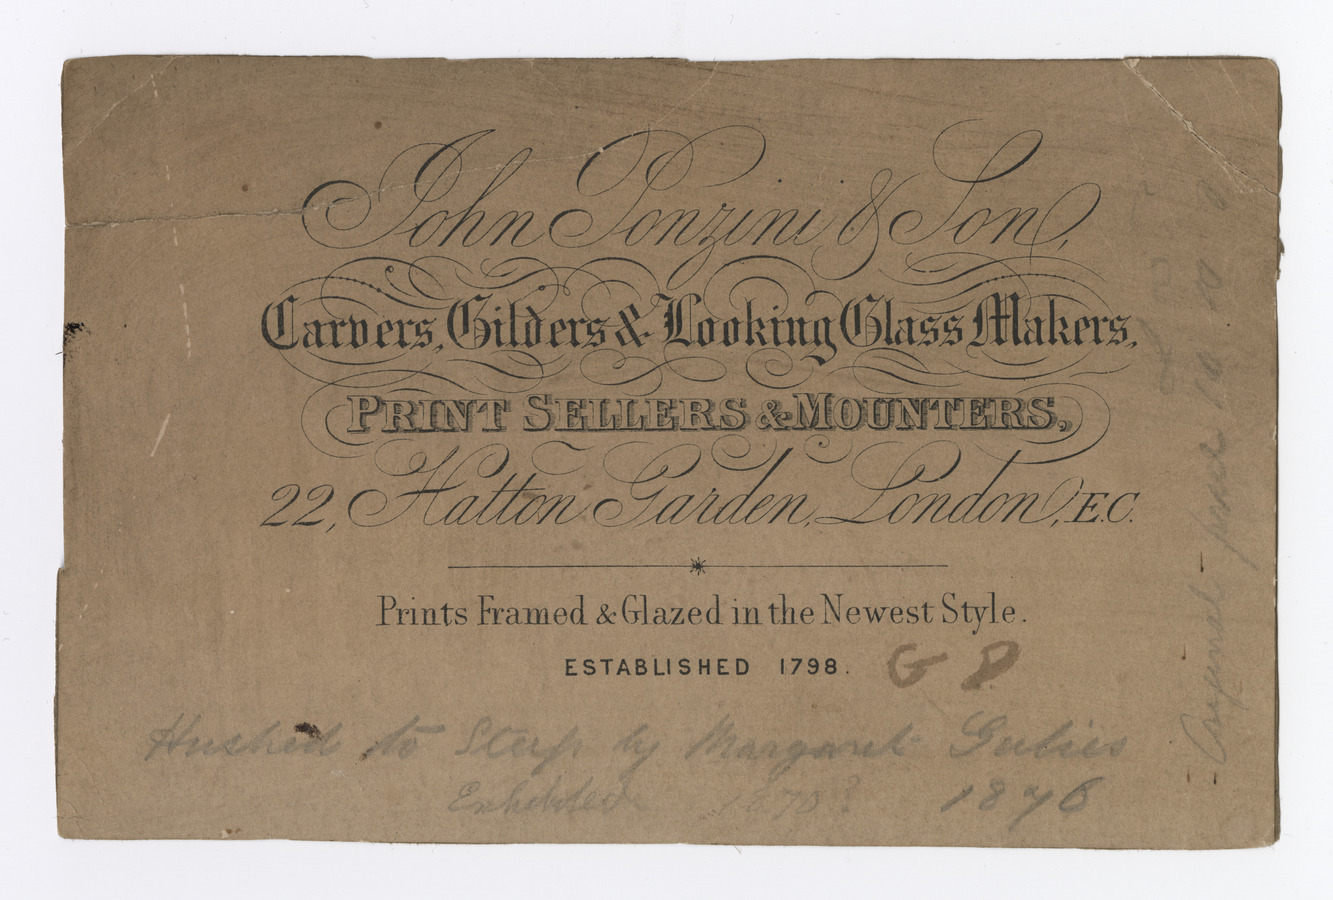 John Ponzini & Son,
Carvers, Gilders & Looking Glass Makers,
PRINT SELLERS & MOUNTERS,
22, Hatton Garden, London, E.C.
Prints Framed & Glazed in the Newest Style.
ESTABLISHED 1798.
G D
Hushed to Sleep by Margaret Gillies
Exhibited 1870? 1876